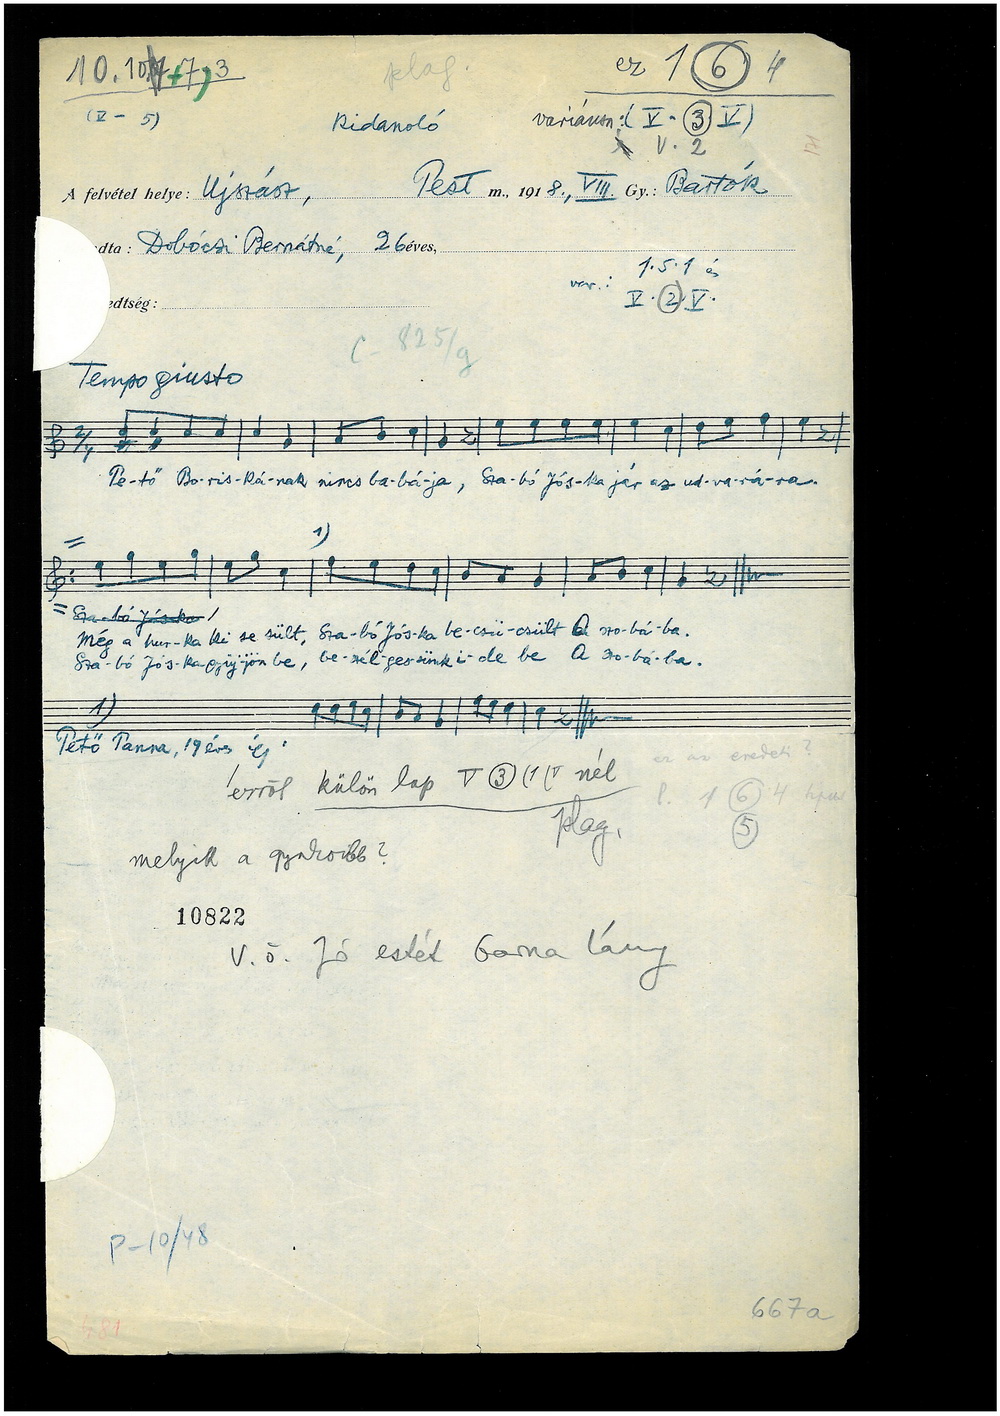 10. 10 +7, 3
plag.
ez 1 6 4
(V - 5)
Kidanoló
variánsn: (V - 3 V)
V. 2
A felvétel helye: Ujszász, Pest m., 1918., VIII. Gy.: Bartók
dta: Dobóczi Bernátné, 26 éves,
1.5.1 és
var.: V. 2 V.
edtség:
C- 825/g
Tempo giusto
Pe-tő Bo-ris-ká-nak nincs ba-bá-ja, Sza-bó Jós-ka jár az ud-va-rá-ra.
1)
Sza-bó Jós-ka /
Még a hur-ka ki se sült, Sza-bó Jós-ka be-csü-csült A szo-bá-ba.
Sza-bó Jós-ka gyüjjön be, be-szél-gessünk i-de be A szo-bá-ba.
1)
Pető Panna, 19 éves így:
erről külön lap V 3 (1(V nél
ez az eredeti?
1 6 4 tipus
5
plag.
melyik a gyakoribb?
10822
V. ö. Jó estét barna lány
P-10/48
667a
481